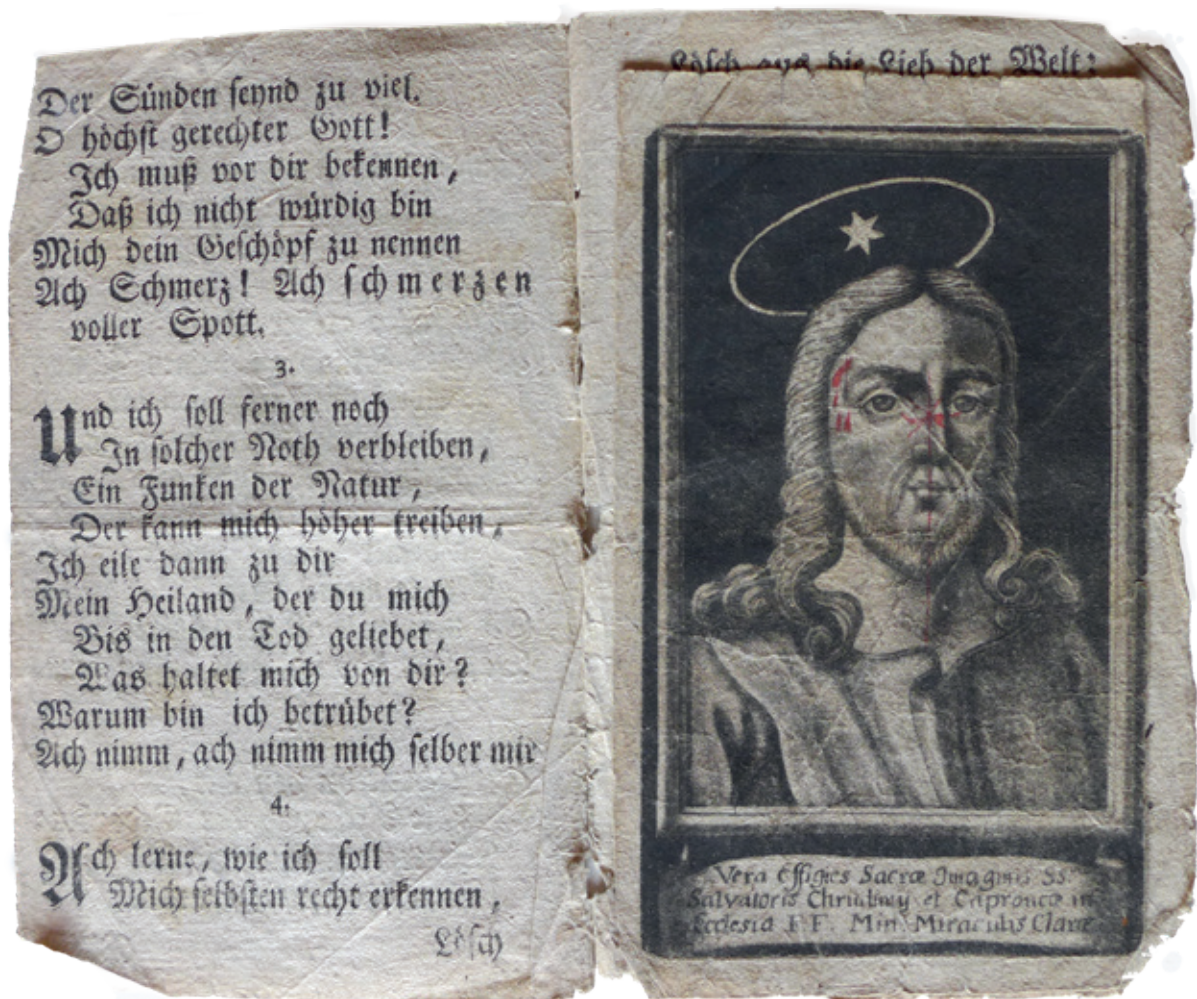 Der Sünden seynd zu viel.
O höchst gerechter Gott!
Ich muß vor dir bekennen,
Daß ich nicht würdig bin
Mich dein Geschöpf zu nennen
Ach Schmerz! Ach schmerzen
voller Spott.
3.
Und ich soll ferner noch
In solcher Noth verbleiben,
Ein Funken der Natur,
Der kann mich höher treiben,
Ich eile dann zu dir
Mein Heiland, der du mich
Bis in den Tod geliebet,
Was haltet mich von dir?
Warum bin ich betrübet?
Ach nimm, ach nimm mich selber mir
4.
Ach lerne, wie ich soll
Mich selbsten recht erkennen,
Lösch
Lösch aus die Lieb der Welt:
Vera Effigies Sacræ Imaginis SS
Salvatoris et Caproncæ in
Ecclesia F.F. Min Miraculis Claræ